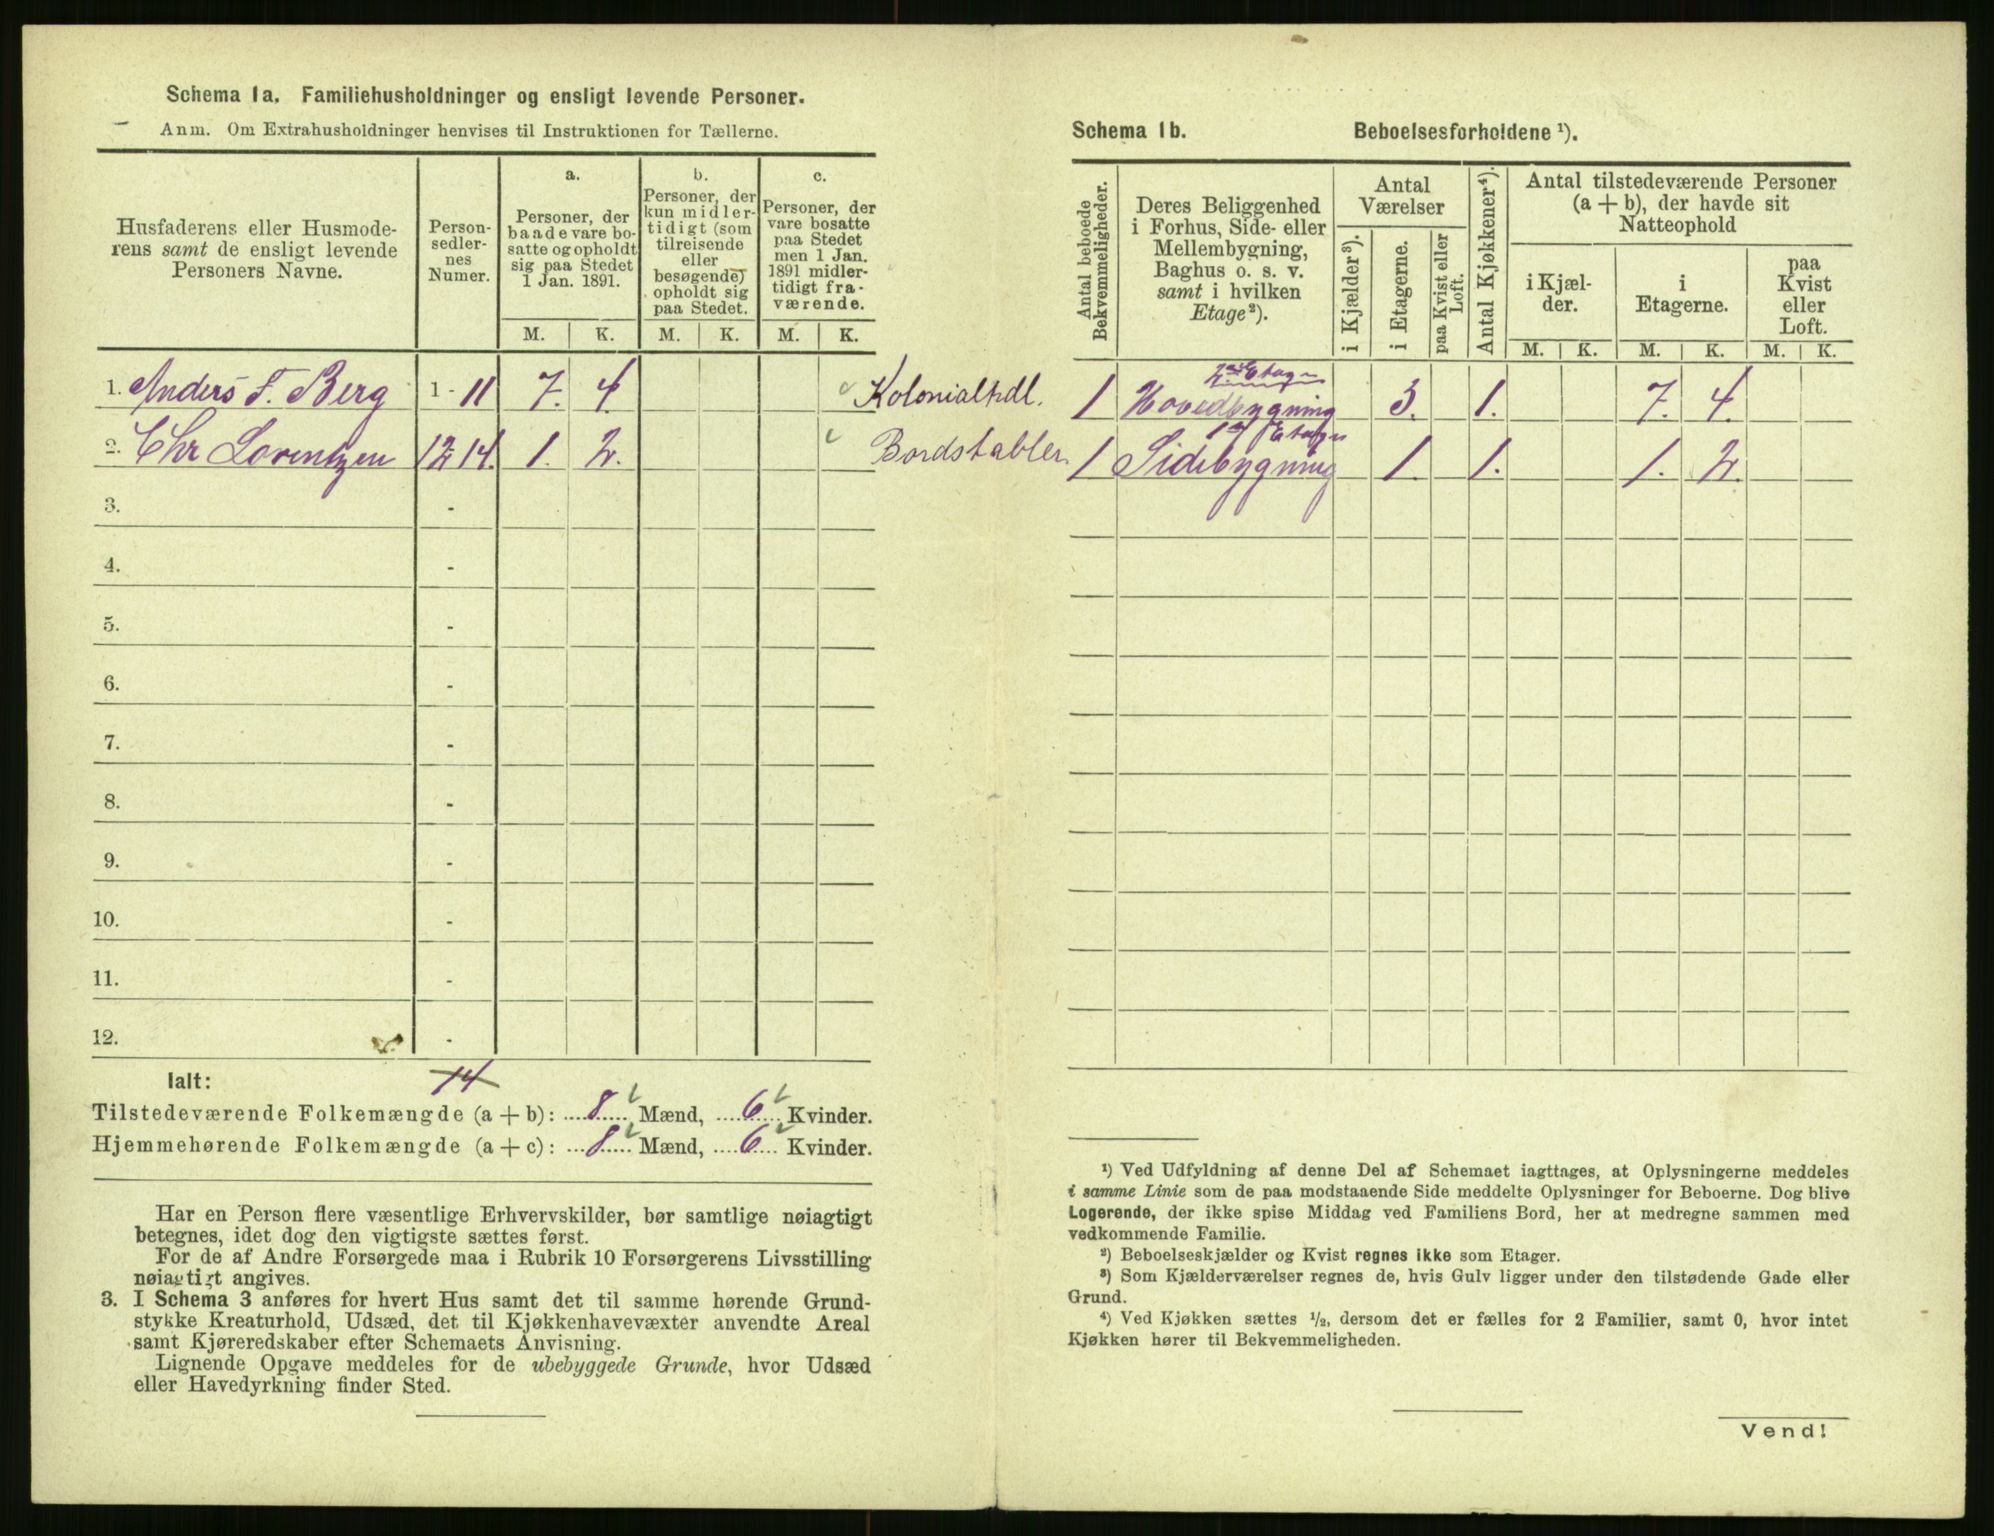 Schema 1a. Familiehusholdninger og ensligt levende Personer.
Anm. Om Extrahusholdninger henvises til Instruktionen for Tællerne.
Husfaderens eller Husmode-
rens samt de ensligt levende
Personers Navne.
Person-
sedler-
nes
Numer.
a.
Personer, der
baade vare bo-
satte og opholdt
sig paa Stedet
1 Jan. 1891.
b.
Personer, der
kun midler-
tidigt (som
tilreisende
eller
besøgende)
opholdt sig
paa Stedet.
c.
Personer, der
vare bosatte
paa Stedet
men 1 Jan.
1891 midler-
tidigt fra-
værende.
M. K. M. K. M. K.
1. Anders F. Berg 1 - 11 7. 4. Kolonialhdl.
2. Chr Lorentzen 12 14. 1. 2. Bordstabler.
3. -
4. -
5. -
6. -
7. -
8. -
9. -
10. -
11. -
12. -
Ialt: 14
Tilstedeværende Folkemængde (a + b): 8 Mænd, 6 Kvinder.
Hjemmehørende Folkemængde (a + c): 8 Mænd, 6 Kvinder.
Har en Person flere væsentlige Erhvervskilder, bør samtlige nøiagtigt
betegnes, idet dog den vigtigste sættes først.
For de af Andre Forsørgede maa i Rubrik 10 Forsørgerens Livsstilling
nøiagtigt angives.
3. I Schema 3 anføres for hvert Hus samt det til samme hørende Grund-
stykke Kreaturhold, Udsæd, det til Kjøkkenhavevæxter anvendte Areal
samt Kjøreredskaber efter Schemaets Anvisning.
Lignende Opgave meddeles for de ubebyggede Grunde, hvor Udsæd
eller Havedyrkning finder Sted.
Schema 1b. Beboelsesforholdene ¹).
Antal beboede
Bekvemmeligheder.
Deres Beliggenhed
i Forhus, Side- eller
Mellembygning,
Baghus o. s. v.
samt i hvilken
Etage²).
Antal
Værelser
i Kjælder³).
i Etagerne.
paa Kvist eller
Loft.
Antal Kjøkkener⁴).
Antal tilstedeværende Personer
(a + b), der havde sit
Natteophold
i Kjæl-
der.
i
Etagerne.
paa
Kvist
eller
Loft.
M. K. M. K. M. K.
2den Etage
1 Hovedbygning 3. 1. 7. 4.
1ste Etage
1 Sidebygning 1. 1. 1. 2.
¹) Ved Udfyldning af denne Del af Schemaet iagttages, at Oplysningerne meddeles
i samme Linie som de paa modstaaende Side meddelte Oplysninger for Beboerne. Dog blive
Logerende, der ikke spise Middag ved Familiens Bord, her at medregne sammen med
vedkommende Familie.
²) Beboelseskjælder og Kvist regnes ikke som Etager.
³) Som Kjælderværelser regnes de, hvis Gulv ligger under den tilstødende Gade eller
Grund.
⁴) Ved Kjøkken sættes ½, dersom det er fælles for 2 Familier, samt 0, hvor intet
Kjøkken hører til Bekvemmeligheden.
Vend!